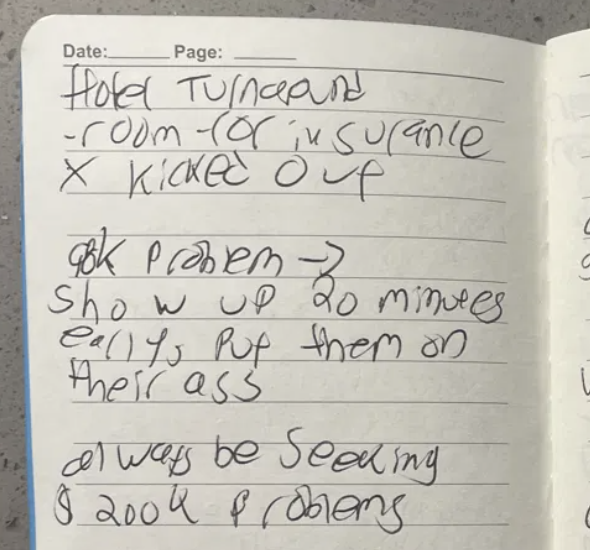 Date: Page:
Hotel Turnaround
- room for insurance
X kicked out
98k problem →
Show up 20 minutes
early, put them on
their ass
always be seeking
$ 200k problems